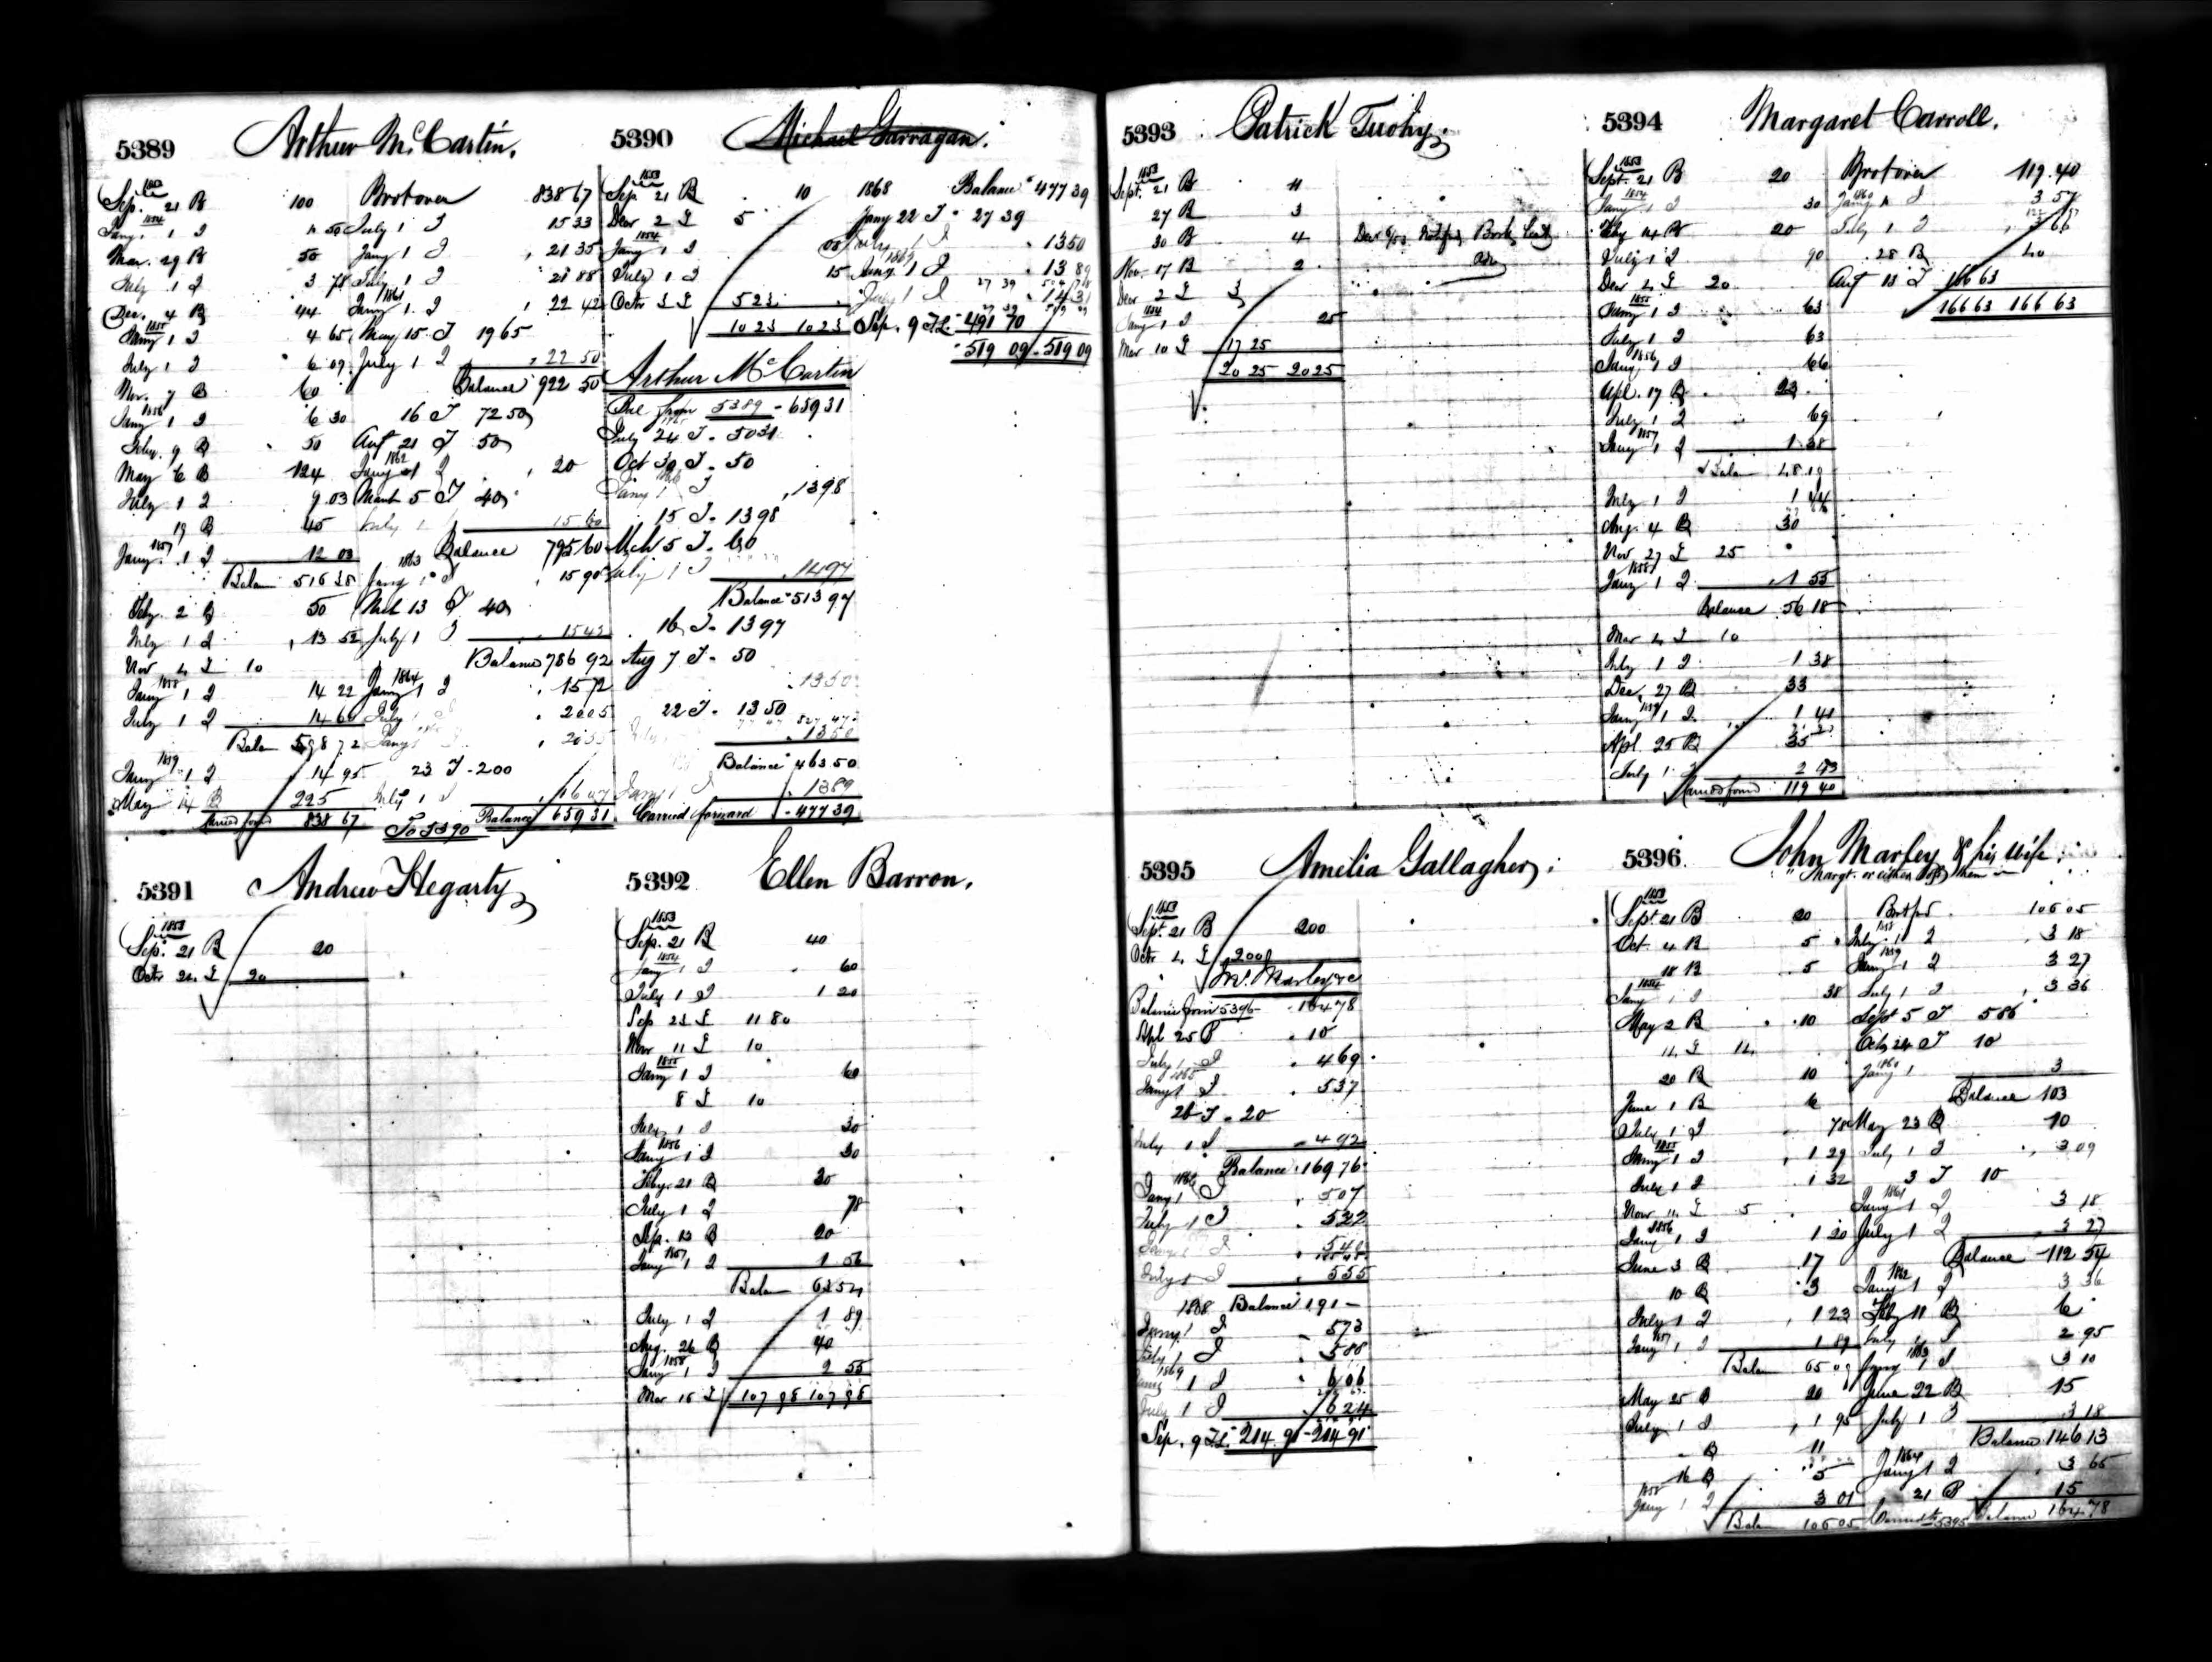 5389 Arthur McCartin.
1853
Sep. 21 B 100
1854
Jany. 1 I 1 50
Mar. 29 B 50
July 1 I 3 78
Dec. 4 B 44
1855
Jany 1 I 4 65
July 1 I 6 09
Nov. 7 B 60
1856
Jany 1 I 6 30
Feby. 9 B 50
May 6 B 124
July 1 I 9.03
19 B 45
1857
Jany. 1 I 12 03
Balan 516 38
Feby. 2 B 50
July 1 I 13 52
Nov 4 I 10
1858
Jany 1 I 14 22
July 1 I 14 60
Balan 598 72
1859
Jany 1 I 14 95
May 14 B 225
Carried forwd 838 67
Brot over 838 67
July 1 I 15 33
Jany 1 I 21 35
July 1 I 21 88
1861
Jany 1 I 22 42
May 15 I 19 65
July 1 I 22 50
Balance 922 50
16 I 72 50
Aug 21 I 50
1862
Jany 1 I 20
March 5 I 40
July 1 15 60
Balance 795 60
1863
Jany 1 I 15 90
Mch 13 I 40
July 1 I 15 42
Balance 786 92
1864
Jany 1 I 15 72
July 20 05
Jany
23 I 200
July 1 I 16 07
To 5390 Balance 659 31
5390 Michael Garragan.
1853
Sep. 21 B 10
Decr 2 I 5
1854
Jany 1 I 08
July 1 I 15
Octr 3 I 5 23
10 23 10 23
Arthur McCartin
Bal from 5389 - 659 31
July 24 I - 50 31
Oct 30 I - 50
Jany 1 I 13 98
15 I - 13 98
Mch 5 I - 60
July 1 I 14 97
Balance 513 97
16 I - 13 97
Aug 7 I - 50
13 50
22 I - 13 50
13 50
Balance 463 50
Jany 1 I 13 89
Carried forward - 477 39
1868 Balance 477 39
Jany 22 I - 27 39
July 1 I 13 50
1869
Jany 1 I 13 89
July 1 I 14 31
Sep. 9 I.L. 491 70
519 09 - 519 09
5391 Andrew Hegarty
1853
Sep. 21 B 20
Octr 24 I 20
5392 Ellen Barron.
1853
Sep. 21 B 40
1854
Jany 1 I 60
July 1 I 1 20
Sep 23 I 11 80
Novr 11 I 10
1855
Jany 1 I 60
8 I 10
July 1 I 30
1856
Jany 1 I 30
Feby. 21 B 30
July 1 I 78
Sep. 13 B 20
1857
Jany 1 I 1 56
Balan 63 54
July 1 I 1 89
Aug. 26 B 40
1858
Jany 1 I 2 55
Mar 16 I 107 98 107 98
5393 Patrick Tuohy.
1853
Sept. 21 B 11
27 B 3
30 B 4
Nov. 17 B 2
Decr 2 I 3
1854
Jany 1 I 25
Mar 10 I 17 25
20 25 20 25
5394 Margaret Carroll.
1853
Sept. 21 B 20
1854
Jany 1 I 30
May 14 B 20
July 1 I 90
Decr 4 I 20
1855
Jany 1 I 63
July 1 I 63
1856
Jany 1 I 66
Apl. 17 B 23
July 1 I 69
1857
Jany 1 I 1.38
Balan 48.19
July 1 I 1 44
Aug. 4 B 30
Nov 27 I 25
1858
Jany 1 I 1 55
Balance 56 18
Mar 4 I 10
July 1 I 1 38
Dec. 27 B 33
1859
Jany 1 I 1 41
Apl. 25 B 35
July 1 I 2 43
Carried forwd 119 40
Brot over 119.40
1860
Jany 1 I 3 57
July 1 I 3 66
28 B 40
Aug 13 I 166 63
166 63 166 63
5395 Amelia Gallagher.
1853
Sept. 21 B 200
Octr 4 I 200
M. Marley &c
Balance from 5396 - 164 78
Apl 25 B 10
July 1 I 4 69
1865
Jany 1 I 5 37
26 I - 20
July 1 I 4 92
Balance 169 76
1866
Jany 1 I 5 07
July 1 I 5 22
Jany 1 I 5 40
July 1 I 5 55
1868 Balance 191 -
Jany 1 I 5 73
July 1 I 5 88
1869
Jany 1 I 6 06
July 1 I 6 24
Sep. 9 I.L. 214.91 - 214 91
5396. John Marley & his wife.
" Margt. or either of them
1853
Sept. 21 B 20
Oct. 4 B 5
18 B 5
1854
Jany 1 I 38
May 2 B 10
11 I 14
20 B 10
June 1 B 6
July 1 I 78
1855
Jany 1 I 1 29
July 1 I 1 32
Novr 11 I 5
1856
Jany 1 I 1 20
June 3 B 17
10 B 3
July 1 I 1 23
1857
Jany 1 I 1 89
Balan 65 09
May 25 B 20
July 1 I 1 95
B 11
16 B 5
1858
Jany 1 I 3 01
Balan 106 05
Brot fwd. 106 05
1858
July 1 I 3 18
1859
Jany 1 I 3 27
July 1 I 3 36
Sept 5 I 5 86
Octr 24 I 10
1860
Jany 1 3
Balance 103
May 23 B 10
July 1 I 3 09
3 I 10
1861
Jany 1 I 3 18
July 1 I 3 27
Balance 112 54
1862
Jany 1 I 3 36
Feby 11 B 6
July 1 I 2 95
1863
Jany 1 I 3 10
June 22 B 15
July 1 I 3 18
Balance 146 13
1864
Jany 1 I 3 65
21 B 15
Carried to 5395 Balance 164 78